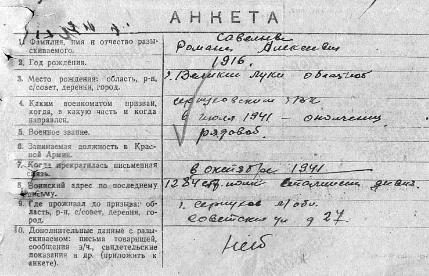 АНКЕТА
1. Фамилия, имя и отчество разыскиваемого.
Савельев
Роман Алексеевич
2. Год рождения.
1916.
3. Место рождения: область, р-н, с/совет, деревня, город.
г. Великие Луки
4. Каким военкоматом призван, когда, в какую часть и когда направлен.
серпуховским
в июле 1941 -
5. Военное звание.
рядовой.
6. Занимаемая должность в Красной Армии.
7. Когда прекратилась письменная связь.
в октябре 1941
8. Воинский адрес по последнему письму.
1284 стр. полк
9. Где проживал до призыва: область, р-н, с/совет, деревня, город.
г. серпухов м/обл.
советская ул д 27.
10. Дополнительные данные о разыскиваемом: письма товарищей, сообщения з/ч., свидетельские показания и др. (приложить к анкете).